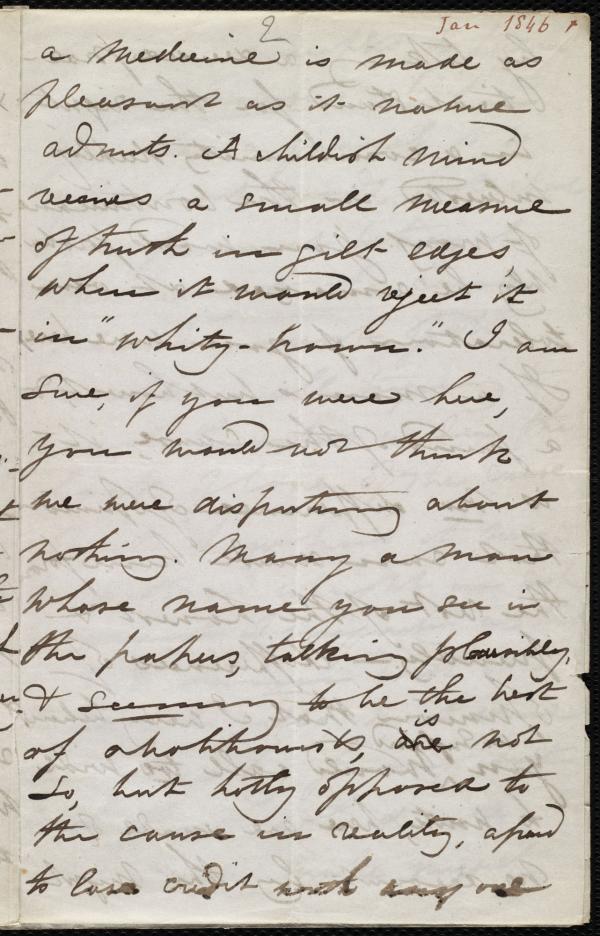 2
Jan 1846
a medicine is made as
pleasant as it nature
admits. A childish mind
receives a small measure
of truth in gilt edges,
when it would reject it
in "whity-brown." I am
sure, if you were here,
you would not think
we were disputing about
nothing. Many a man
whose name you see in
the papers, talking plausibly,
& seeming to be the best
is
of abolitionists, are not
so, but hotly opposed to
the cause in reality, afraid
to lose credit with any one